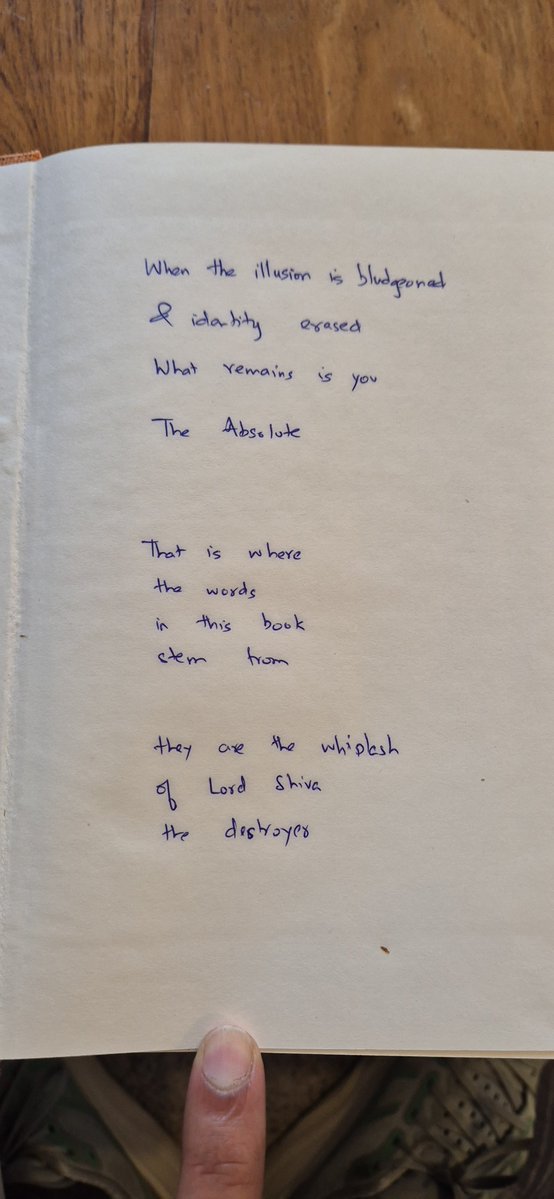 When the illusion is bludgeoned
& identity erased
What remains is you
The Absolute
That is where
the words
in this book
stem from
they are the whiplash
of Lord Shiva
the destroyer